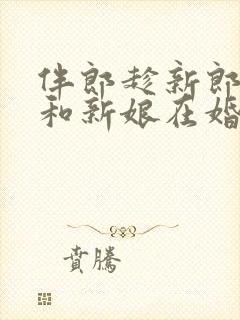 伴郎趁新郎
和新娘在婚
賁騰